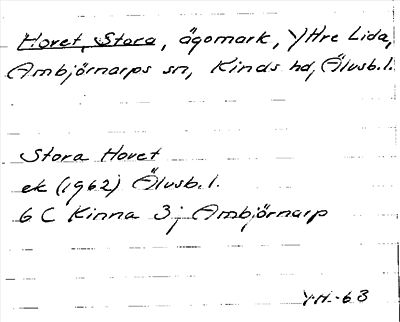 Hovet, Stora, ägomark, Yttre Lida,
Ambjörnarps sn, Kinds hd, Älvsb.l.
Stora Hovet
ek (1962) Älvsb.l.
6 C Kinna 3j Ambjörnarp
YH-63